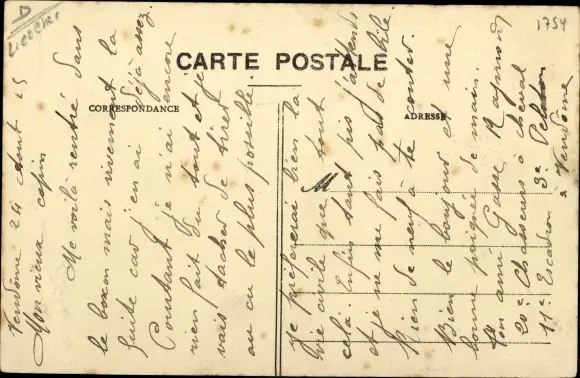 D
Lieether
1754
CARTE POSTALE
CORRESPONDANCE
ADRESSE
M
Vendôme 24 Aout 15
Mon vieux copin
Me voilà rentré dans
le boxon mais vivement la
fuite car j'en ai déjà assez.
Pourtant je n'ai encore
rien fait du tout et je
vais tâcher de tirer
au cu le plus possible.
Je préfèrerai bien la
vie civile que tout
cela. Enfin tant pis j'attends
et je ne me fais pas de bile
Rien de neuf à te conter.
Bien le bonjour et une
bonne poignée de main.
Ton ami Gasse Raymond
20e Chasseurs à cheval
11e Escadron 3e Peloton
à Vendôme